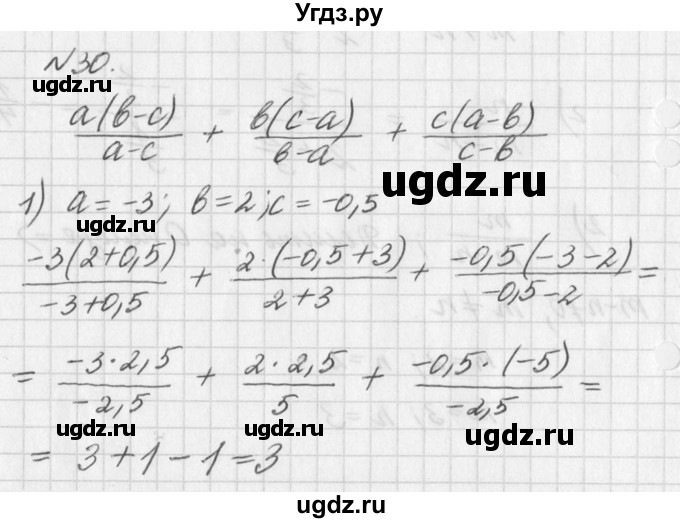 Угдз.ру
№30.
a(в-c)/(a-c) + в(c-a)/(в-a) + c(a-в)/(c-в)
ugdz.ru ugdz.ru ugdz.ru
1) a = -3; в = 2; c = -0,5
-3(2+0,5)/(-3+0,5) + 2·(-0,5+3)/(2+3) + -0,5(-3-2)/(-0,5-2) =
ugdz.ru ugdz.ru ugdz.ru
= -3·2,5/(-2,5) + 2·2,5/5 + -0,5·(-5)/(-2,5) =
ugdz.ru ugdz.ru ugdz.ru
= 3+1-1=3
ugdz.ru